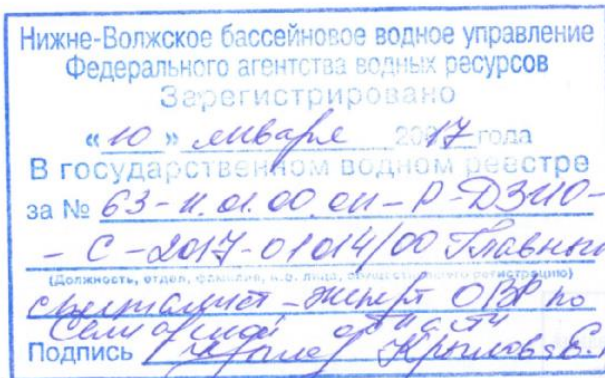 Нижне-Волжское бассейновое водное управление
Федерального агентства водных ресурсов
Зарегистрировано
«10» января 2017 года
В государственном водном реестре
за № 63-11.01.00.011-Р-ДЗИО-
-С-2017-01014/00 Главный
(Должность, отдел, фамилия, и.о. лица, осуществившего регистрацию)
специалист-эксперт ОВР по
Самарской области
Подпись Крылова Е.